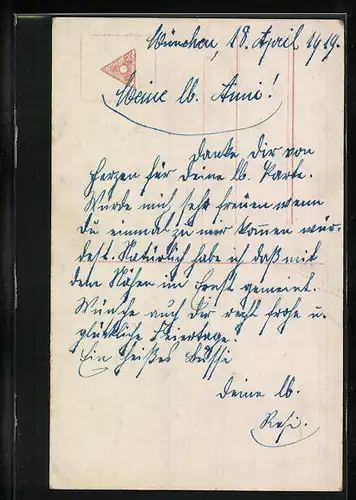 München, 18. April 1919.
Meine lb. Anni!
Danke Dir von
Herzen für Deine lb. Karte.
Würde mich sehr freuen wenn
Du einmal zu mir kommen wür-
dest. Natürlich habe ich daß mit
dem Nähen im Ernst gemeint.
Wünsche auch Dir recht frohe u.
glückliche Feiertage!
Ein heißes Bussi
Deine lb.
Resi.